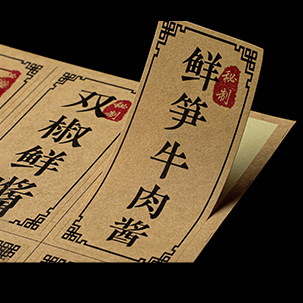 秘制
鲜笋牛肉酱
秘制
双椒鲜酱